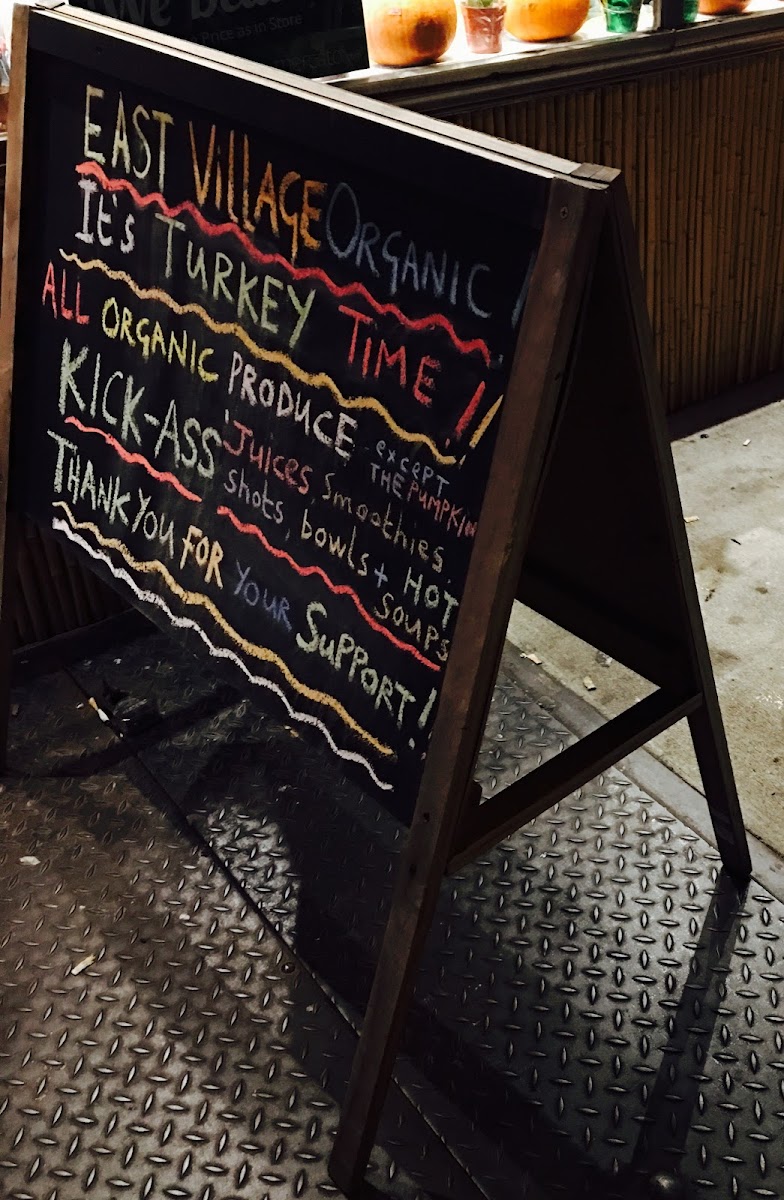 We
Price as in Store
EAST VillAGE ORGANIC !
It's TURKEY TIME !!
ALL ORGANIC PRODUCE except THE PUMPKIN
KICK-ASS Juices, Smoothies.
shots, bowls + HOT
SOUPS
THANK YOU FOR YOUR SUPPORT!